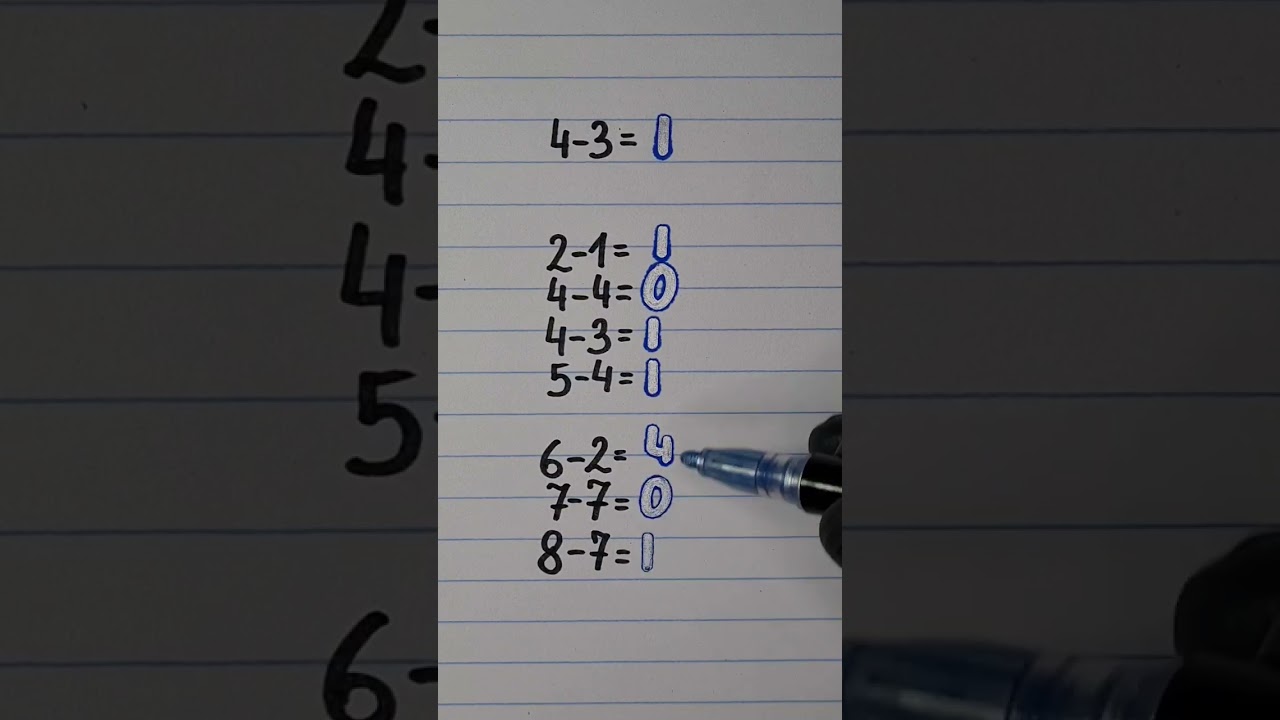 4-3= 1
2-1= 1
4-4= 0
4-3= 1
5-4= 1
6-2= 4
7-7= 0
8-7= 1